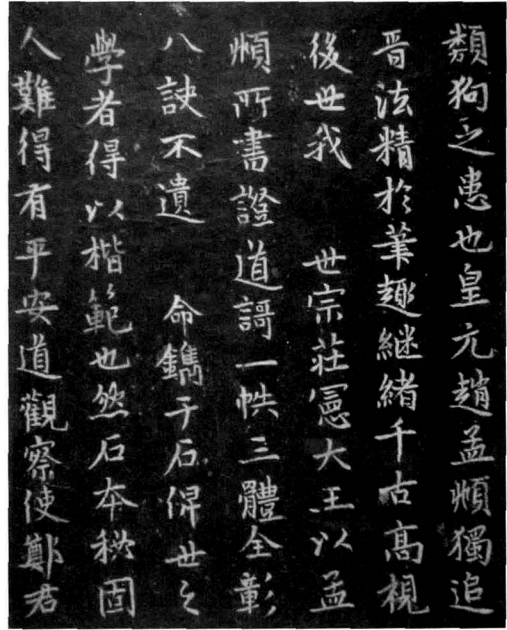 類狗之患也皇元趙孟頫獨追
晉法精於筆趣継緒千古高視
後世我　世宗莊憲大王以孟
頫所書證道謌一帙三體全彰
八訣不遺　命鐫于石俾世之
學者得以楷範也然石本秘固
人難得有平安道觀察使鄭君